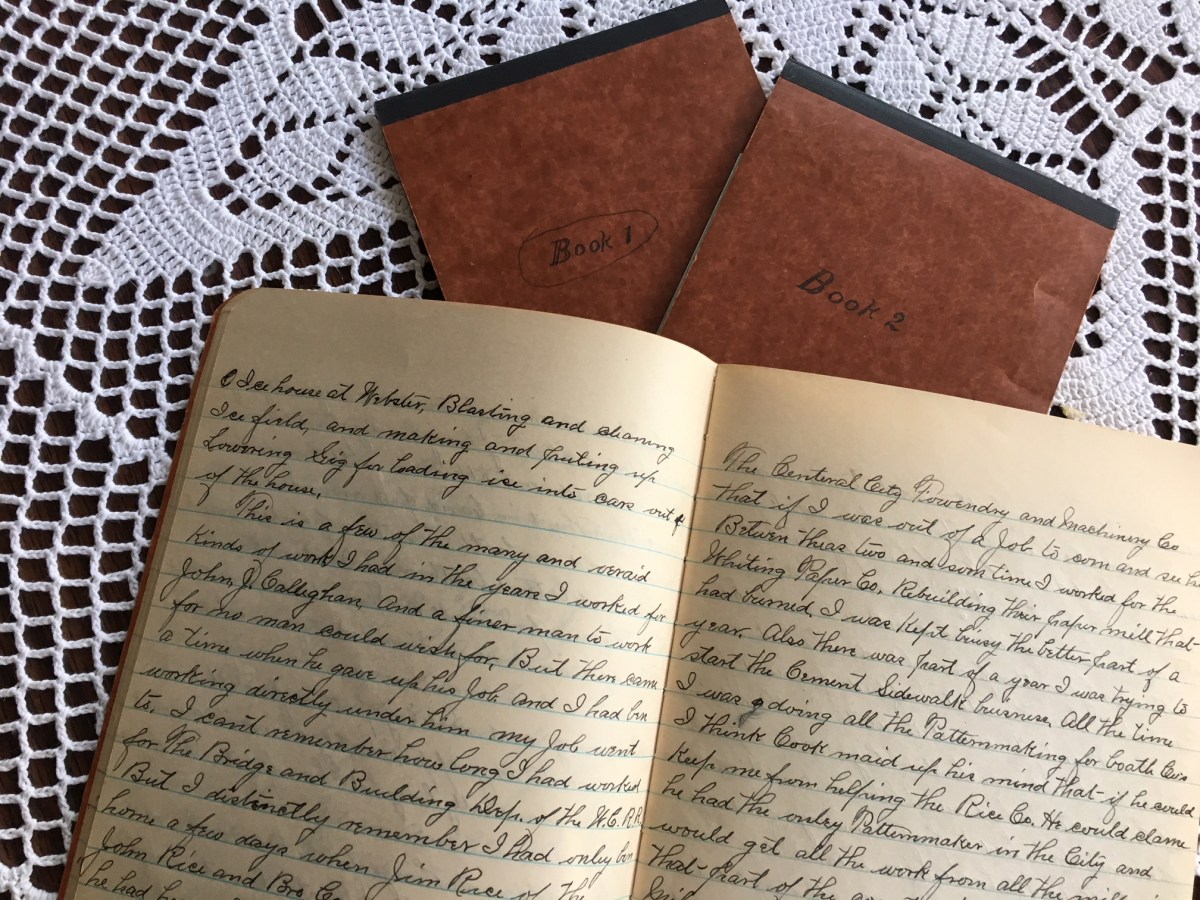 Book 1
Book 2
Ice house at Webster, Blasting and cleaning
Ice field, and making and puting up
Lowering Gig for loading ice into cars out of
of the house.
This is a few of the many and veraid
Kinds of work I had in the years I worked for
John J. Calleghan, And a finer man to work
for no man could wish for, But there came
a time when he gave up his Job. and I had ben
working directly under him my Job went
to. I cant remember how long I had worked
for The Bridge and Building Dep. of the W.C.R.R.
But I distinctly remember I had only ben
home a few days when Jim Rice of the
John Rice and Bro Co
he had
The Centeral City Fowendry and Machinery Co
that if I was out of a Job to com and see
Betwen these two and som time I worked for the
Whiting Paper Co. Rebuilding their paper mill that
had burned. I was Kept busy the better part of a
year. Also there was part of a year I was trying to
start the Cement Sidewalk busines. All the time
I was doing all the Patternmaking for boath Co's
I think Cook maid up his mind that if he could
Keep me from helping the Rice Co. He could clame
he had the onley Patternmaker in the City and
would get all the work from all the mill
that part of the